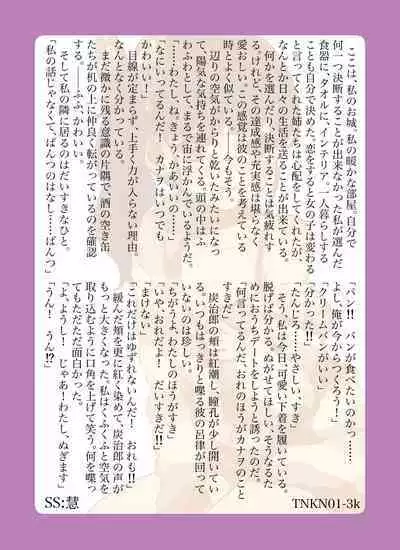 ここは、私のお城。私の暖かな部屋。自分で
何一つ決断することが出来なかった私が選んだ
食器に、タオルに、インテリア。一人暮らしする
ことも自分で決めた。恋をすると女の子は変わる
と言ってくれた姉たちは心配をしてくれたが、
なんとか日々の生活を送ることが出来ている。
何かを選んだり、決断することは気疲れす
る。けれど、その達成感や充実感は堪らなく
愛おしい。この感覚は彼のことを考えている
時とよく似ている。――今もそう。
辺りの空気がからりと乾いたみたいになっ
て、陽気な気持ちを連れてくる。頭の中はふ
わふわとして、まるで宙に浮かんでいるようだ。
「……わたし、ね。きょう、かあいいの……」
「なにいってるんだ！　カナヲはいつでも
かわいい！」
目線が定まらず、上手く力が入らない理由。
なんとなく分かっている。
まだ微かに残る意識の片隅で、酒の空き缶
たちが机の上に仲良く転がっているのを確認
する。――ふふ、かわいい。
そして私の隣に居るのはだいすきなひと。
「私の話じゃなくて、ぱんつのはなし……ぱんつ」
「パン!!　パンが食べたいのかっ……
よし、俺が今からつくろう！」
「クリームパンがいい」
「分かった!!」
「たんじろ……やさしい、すき」
そう、私は今日、可愛い下着を履いている。
脱げば分かる。ぬがせてほしい、そうなるた
めにおうちデートをしようと誘ったのだ。
「何言ってるんだ、おれのほうがカナヲのこと
すきだ」
炭治郎の頬は紅潮し、瞳孔が少し開いてい
る。いつもはっきりと喋る彼の呂律が回って
いないのは珍しい。
「ちがうよ、わたしのほうがすき」
「いや、おれだよ！　だいすきだ!!」
「まけない」
「これだけはゆずれないんだ！　おれも!!」
緩んだ頬を更に紅く染めて、炭治郎の声が
もっと大きくなった。私はくふくふと空気を
取り込むように口角を上げて笑う。何を喋っ
てもただただ面白かった。
「よ、ようし！　じゃあ！わたし、ぬぎます」
「うん！　うん!?」
SS:慧
TNKN01-3k